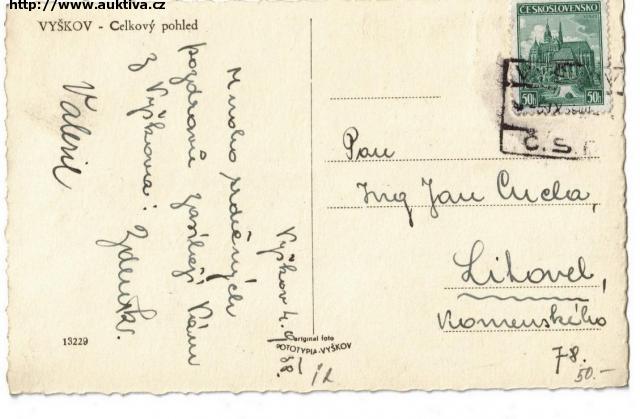 http://www.auktiva.cz
VYŠKOV - Celkový pohled
ČESKOSLOVENSKO
50h 50h
Č.S.
Mnoho srdečných
pozdravů zasílají Vám
z Vyškova:
Zdeněk.
Valerie
Vyškov 4. 9. 38.
Pan
Ing Jan Cucha,
Litovel,
Komenského
78.
50.-
13229
original foto
FOTOTYPIA-VYŠKOV